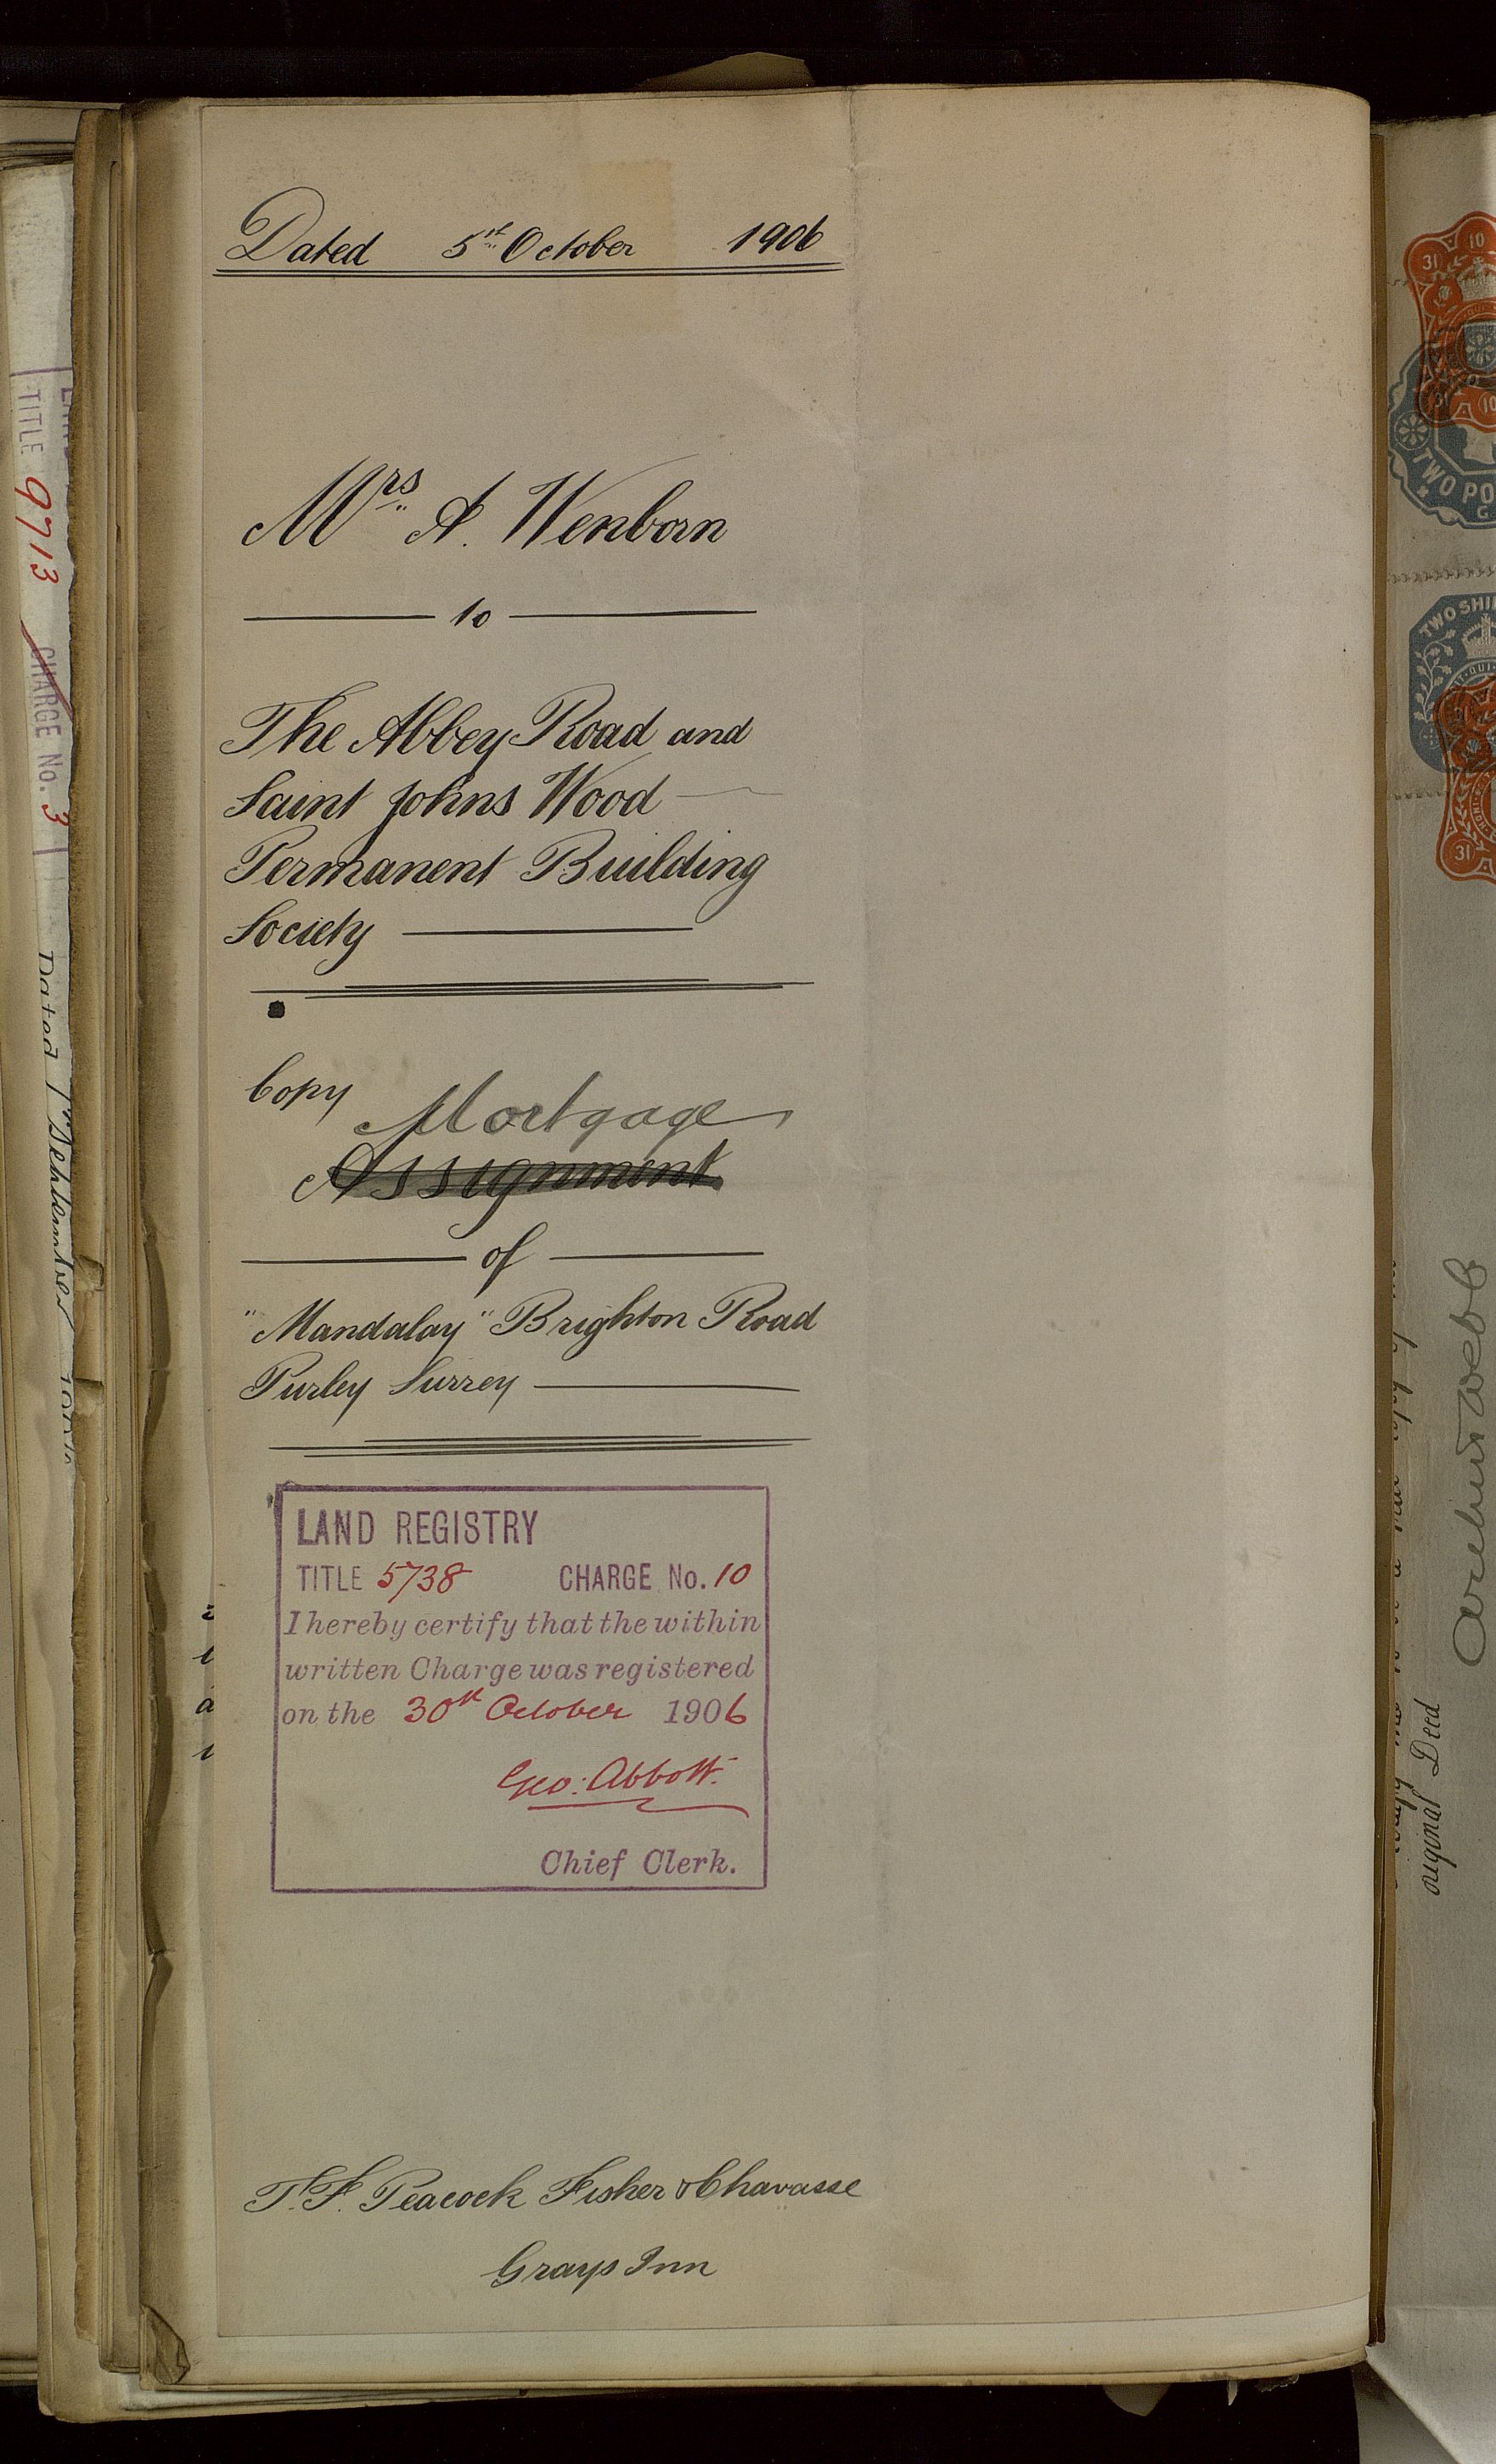 Dated 5st October 1906
Mrs A. Wenborn
to
The Abbey Road and
Saint Johns Wood
Permanent Building
Society
Copy
Mortgage
Assignment
of
"Mandalay" Brighton Road
Purley Surrey
LAND REGISTRY
TITLE 5738 CHARGE No. 10
I hereby certify that the within
written Charge was registered
on the 30th October 1906
Geo: Abbott.
Chief Clerk.
T. F. Peacock Fisher & Chavasse
Grays Inn
TITLE 9713 CHARGE No. 3
Dated 1st September
TWO SHI
TWO PO
31
10
original Deed